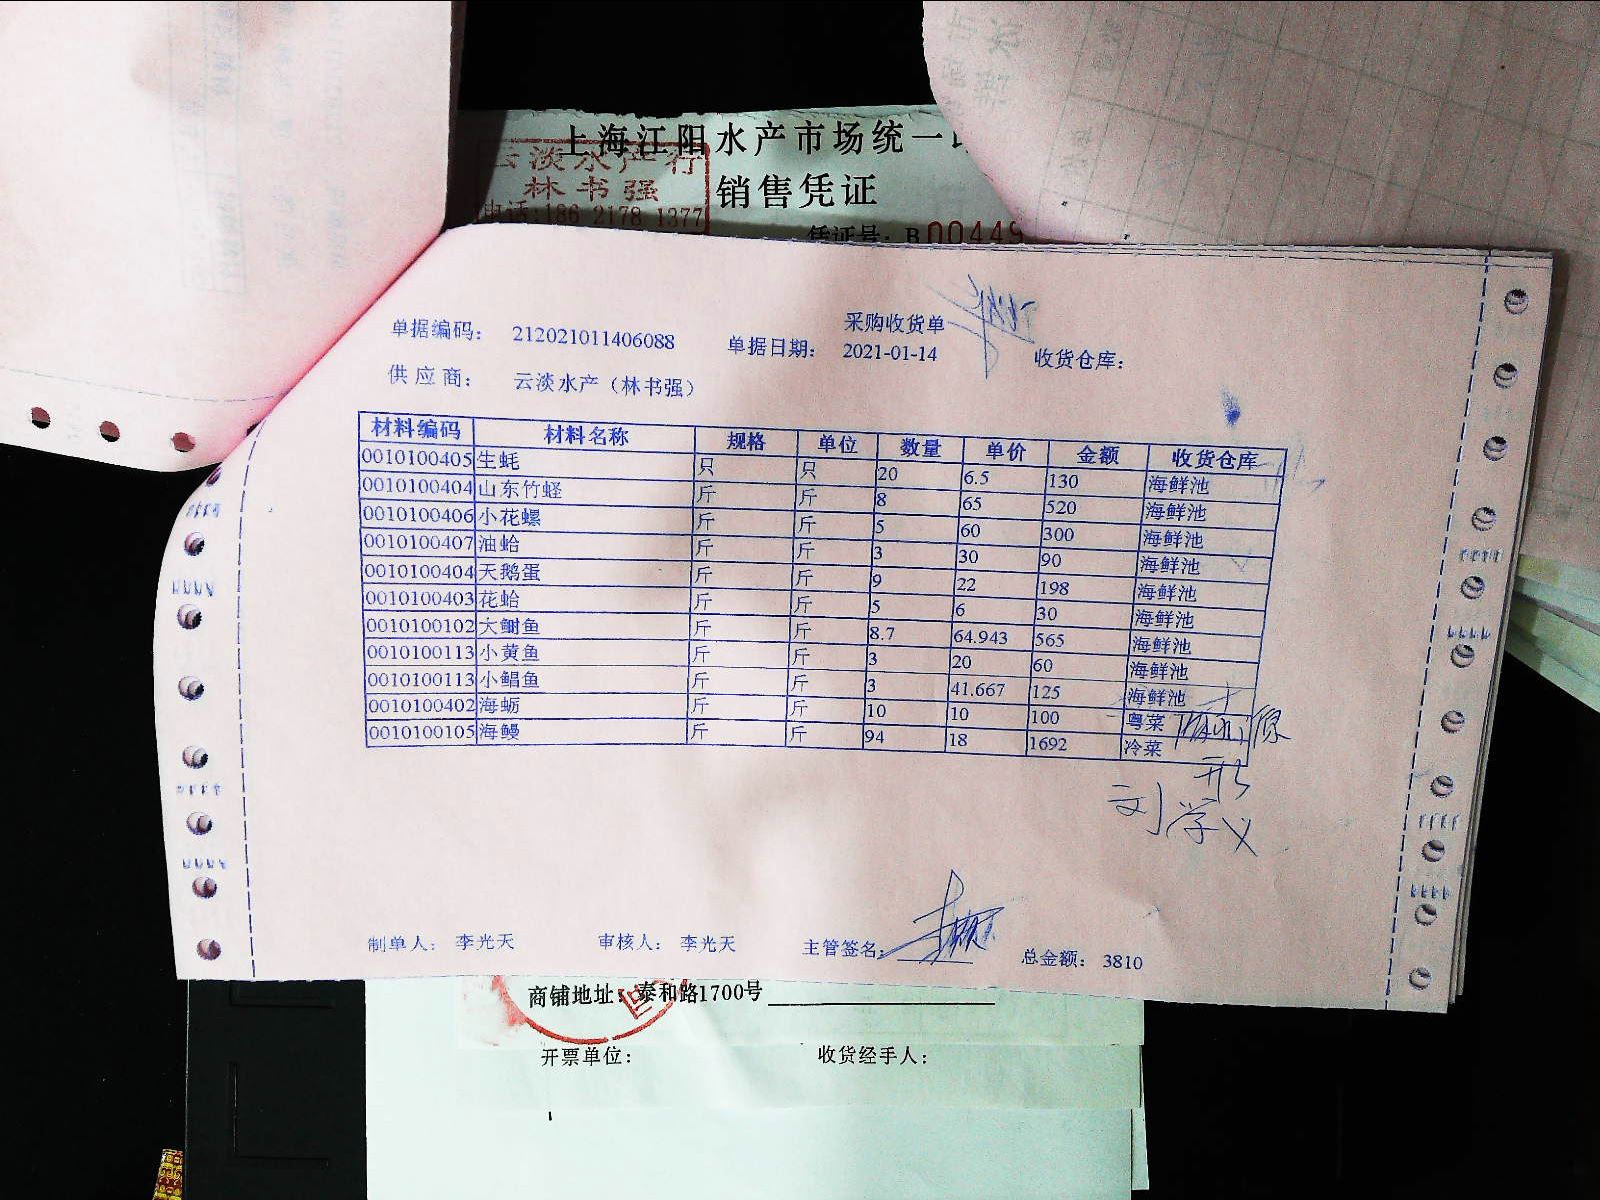 上海江阳水产市场统一
云淡水产行
林书强
电话:186 2178 1377
销售凭证
凭证号: B 00449
采购收货单
单据编码: 212021011406088 单据日期: 2021-01-14 收货仓库:
供应商: 云淡水产（林书强）
材料编码 材料名称 规格 单位 数量 单价 金额 收货仓库
0010100405 生蚝 只 只 20 6.5 130 海鲜池
0010100404 山东竹蛏 斤 斤 8 65 520 海鲜池
0010100406 小花螺 斤 斤 5 60 300 海鲜池
0010100407 油蛤 斤 斤 3 30 90 海鲜池
0010100404 天鹅蛋 斤 斤 9 22 198 海鲜池
0010100403 花蛤 斤 斤 5 6 30 海鲜池
0010100102 大鲥鱼 斤 斤 8.7 64.943 565 海鲜池
0010100113 小黄鱼 斤 斤 3 20 60 海鲜池
0010100113 小鲳鱼 斤 斤 3 41.667 125 海鲜池
0010100402 海蛎 斤 斤 10 10 100 粤菜
0010100105 海鳗 斤 斤 94 18 1692 冷菜
刘学义
制单人: 李光天 审核人: 李光天 主管签名: 总金额: 3810
商铺地址: 泰和路1700号
开票单位: 收货经手人: